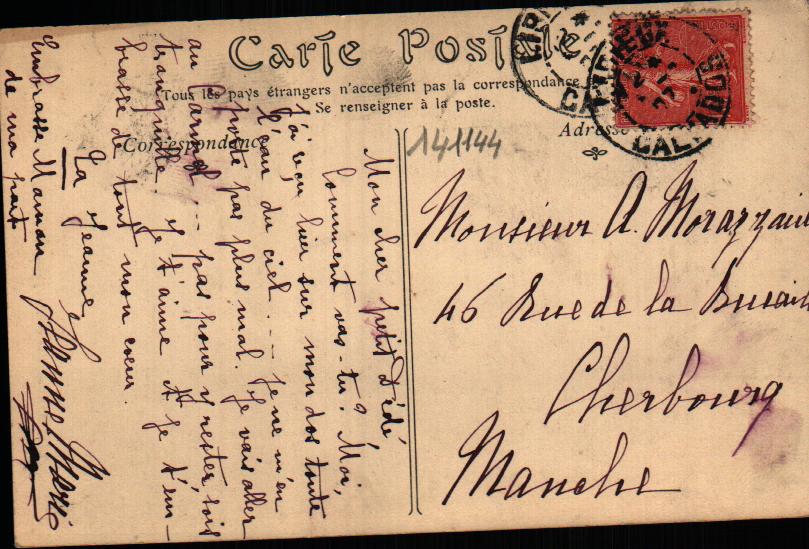 Carte Postale
Tous les pays étrangers n'acceptent pas la correspondance
Se renseigner à la poste.
Correspondance
Adresse
141144
VIRE
CALVADOS
Monsieur A. Morazzani
46 Rue de la Bucaille
Cherbourg
Manche
Mon cher petit Dédé
Comment vas-tu? Moi,
j'ai reçu hier sur mon dos toute
l'eau du ciel... Je ne m'en
porte pas plus mal. Je vais aller
au Carmel... pas pour y rester, sois
tranquille. Je t'aime et je t'em-
brasse de tout mon coeur.
La Jeanne
Embrasse Maman
de ma part
Jeanne Marie